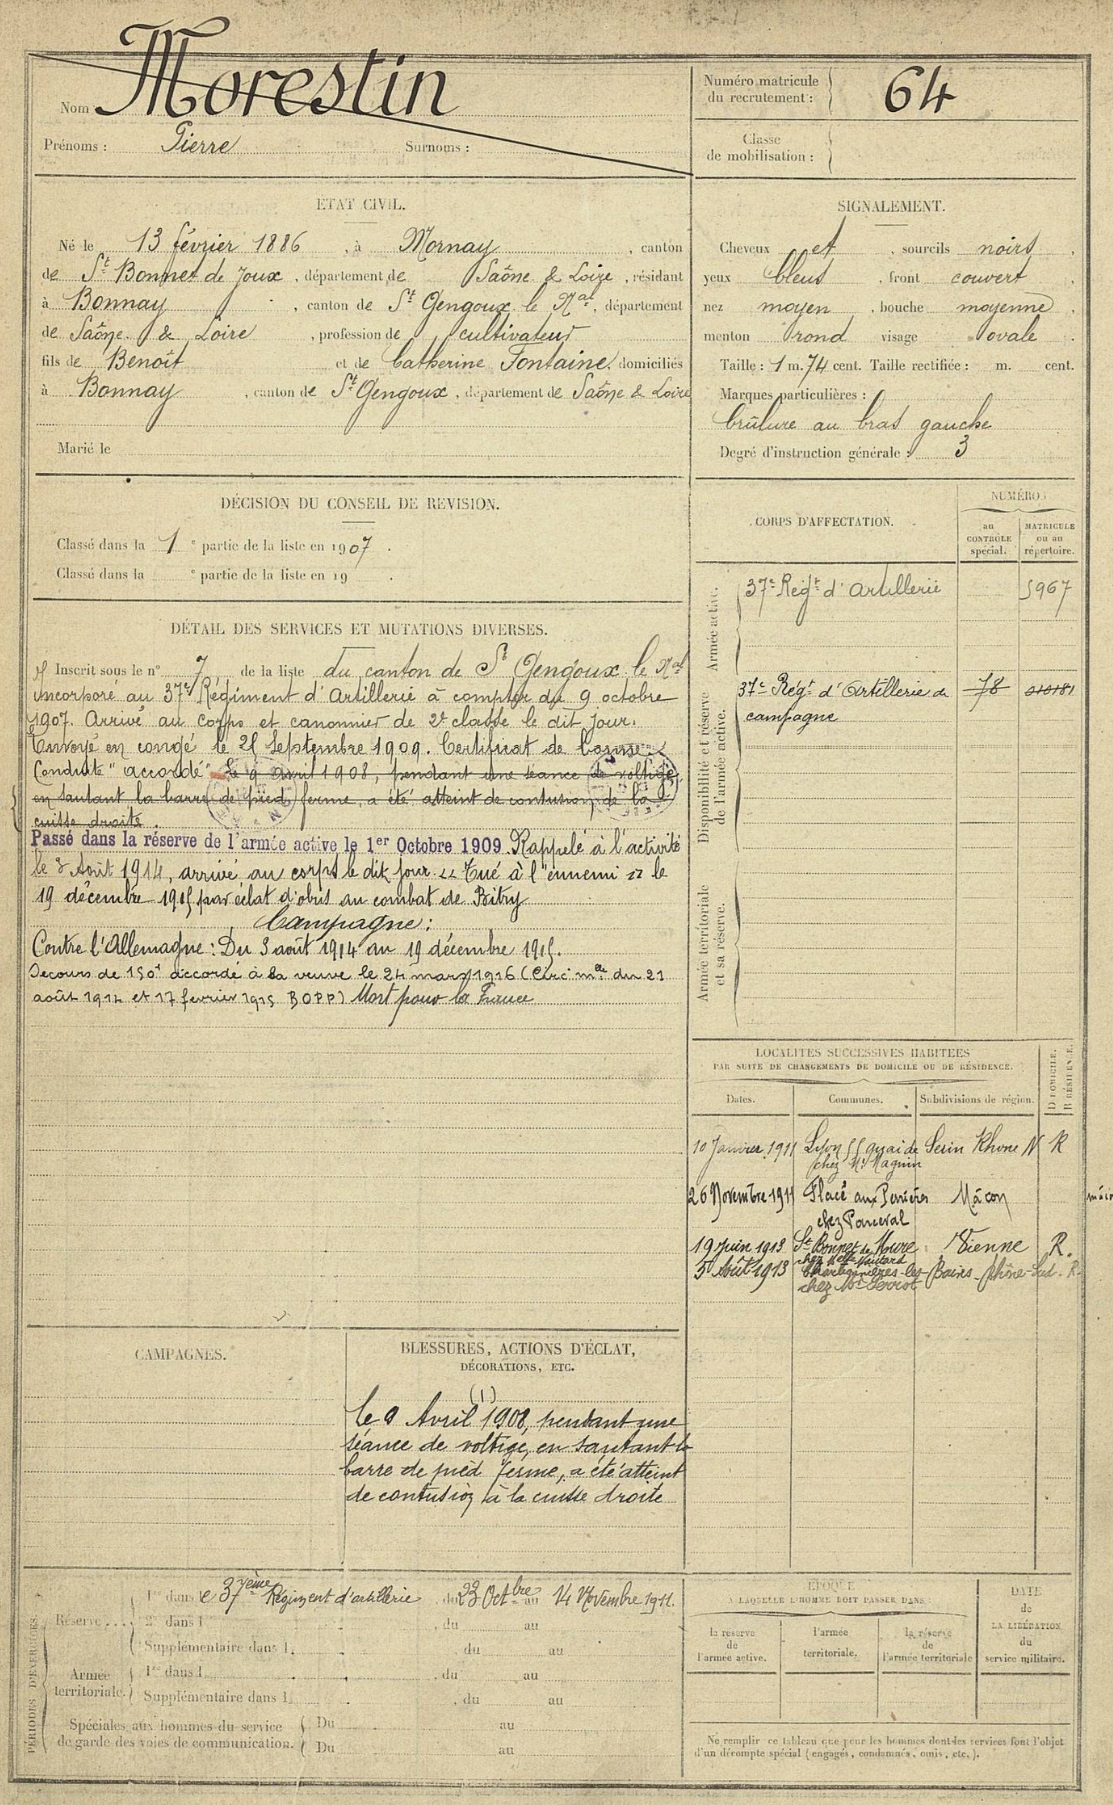 Nom Morestin
Prénoms : Pierre Surnoms :
Numéro matricule du recrutement : 64
Classe de mobilisation :
ETAT CIVIL.
Né le 13 février 1886, à Mornay, canton
de St Bonnet de Joux, département de Saône & Loire, résidant
à Bonnay, canton de St Gengoux le Nal, département
de Saône & Loire, profession de cultivateur
fils de Benoît et de Catherine Fontaine, domiciliés
à Bonnay, canton de St Gengoux, département de Saône & Loire
Marié le
SIGNALEMENT.
Cheveux et, sourcils noirs,
yeux bleus, front couvert,
nez moyen, bouche moyenne,
menton rond visage ovale.
Taille : 1 m. 74 cent. Taille rectifiée : m. cent.
Marques particulières :
brûlure au bras gauche
Degré d'instruction générale : 3
DÉCISION DU CONSEIL DE REVISION.
Classé dans la 1e partie de la liste en 1907.
Classé dans la e partie de la liste en 19 .
DÉTAIL DES SERVICES ET MUTATIONS DIVERSES.
Inscrit sous le n° 7 de la liste du canton de St Gengoux le Nal
incorporé au 37e Régiment d'Artillerie à compter du 9 octobre
1907. Arrivé au corps et canonnier de 2e classe le dit jour.
Envoyé en congé le 25 Septembre 1909. Certificat de bonne
Conduite "accordé" le 9 avril 1908, pendant une séance de voltige,
en sautant la barre de pied ferme, a été atteint de contusion de la
cuisse droite.
Passé dans la réserve de l'armée active le 1er Octobre 1909. Rappelé à l'activité
le 3 Août 1914, arrivé au corps le dit jour. Tué à l'ennemi le
19 décembre 1915 par éclat d'obus au combat de Bitry
Campagne :
Contre l'Allemagne : Du 3 août 1914 au 19 décembre 1915.
Secours de 150f accordé à la veuve le 24 mars 1916 (Circ. mlle du 21
août 1914 et 17 fevrier 1915 BOPP) Mort pour la France
CORPS D'AFFECTATION.
NUMÉRO
au CONTRÔLE spécial.
MATRICULE ou au répertoire.
Armée active.
37e Régt d'artillerie 5967
Disponibilité et réserve de l'armée active.
37e Régt d'Artillerie de 78
campagne
Armée territoriale et sa réserve.
LOCALITES SUCCESSIVES HABITEES
PAR SUITE DE CHANGEMENTS DE DOMICILE OU DE RÉSIDENCE.
Dates. Communes. Subdivisions de région. D. DOMICILE. R. RÉSIDENCE.
10 Janvier 1911 Lyon 55 quai de Serin Rhone N R
chez Mr Magnin
26 Novembre 1911 Flacé Mâcon
chez
19 Juin 1913 St Bonnet de Mure Vienne R.
5 Août 1913 Charbonnières-les-Bains Rhône-Sud. R.
CAMPAGNES.
BLESSURES, ACTIONS D'ÉCLAT,
DÉCORATIONS, ETC.
(1)
le 9 Avril 1908, pendant une
séance de voltige, en sautant la
barre de pied ferme, a été atteint
de contusion à la cuisse droite
PÉRIODES D'EXERCICES.
Réserve
1re dans le 37ème Régiment d'artillerie, du 23 Octbre au 14 Novembre 1911.
2e dans l , du au
Supplémentaire dans l. du au
Armée territoriale.
1re dans l , du au
Supplémentaire dans l , du au
Spéciales aux hommes du service de garde des voies de communication.
Du au
Du au
ÉPOQUE
A LAQUELLE L'HOMME DOIT PASSER DANS
la réserve de l'armée active.
l'armée territoriale.
la réserve de l'armée territoriale
DATE de LA LIBÉRATION du service militaire.
Ne remplir ce tableau que pour les hommes dont les services font l'objet
d'un décompte spécial (engagés, condamnés, omis, etc.).